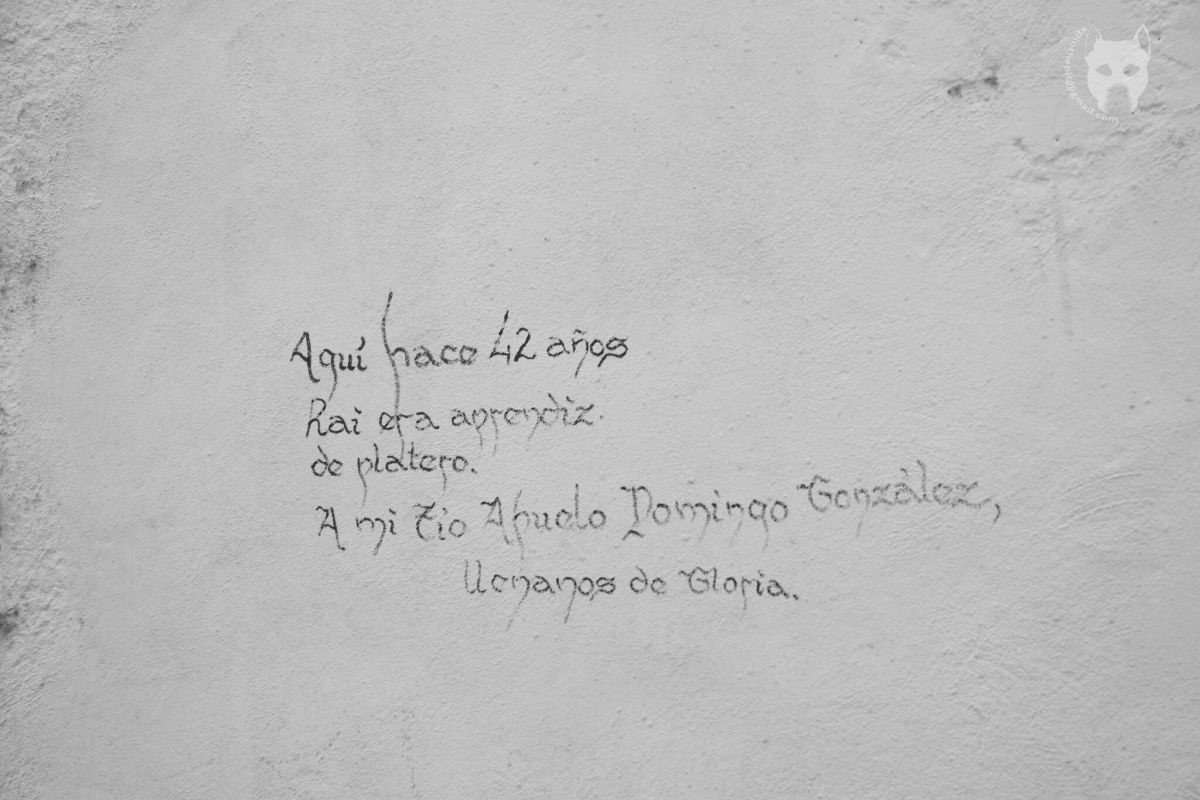 Aquí hace 42 años
Rai era aprendiz.
de platero.
A mi Tío Abuelo Domingo González,
Llénanos de Gloria.